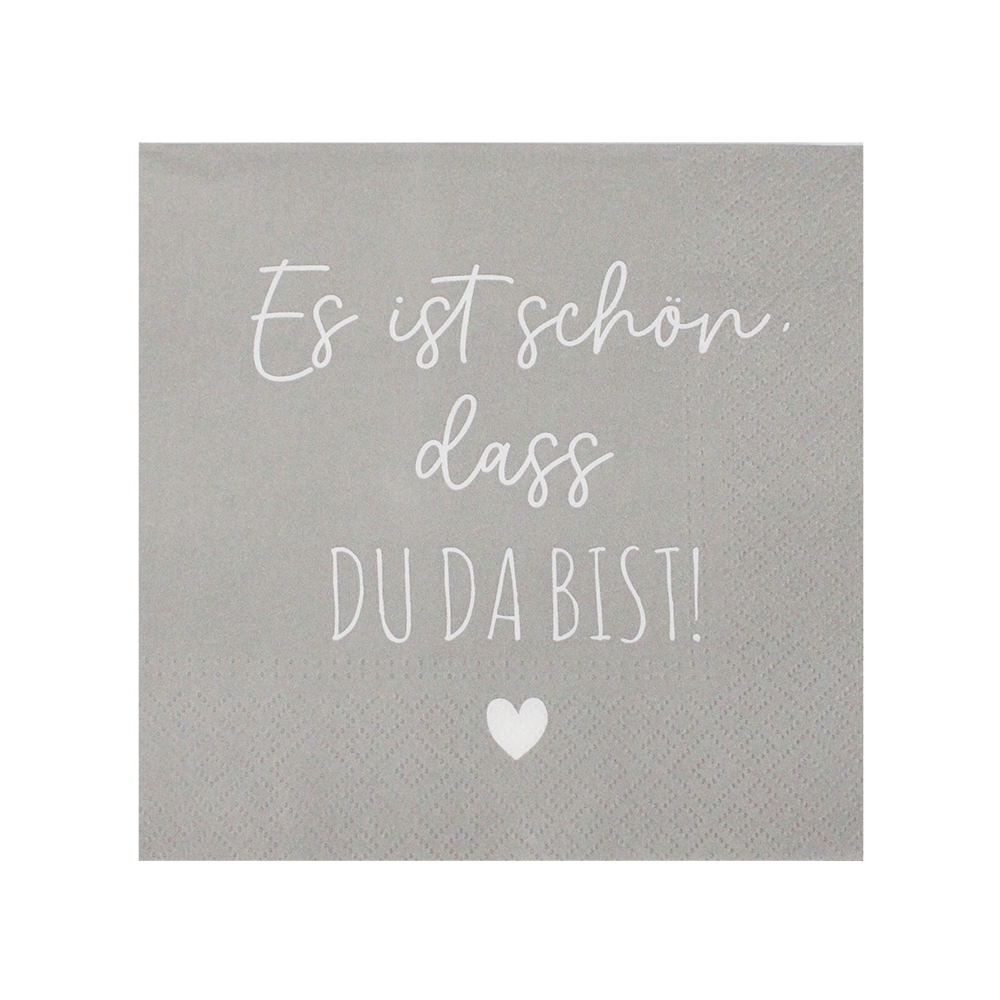 Es ist schön,
dass
DU DA BIST!